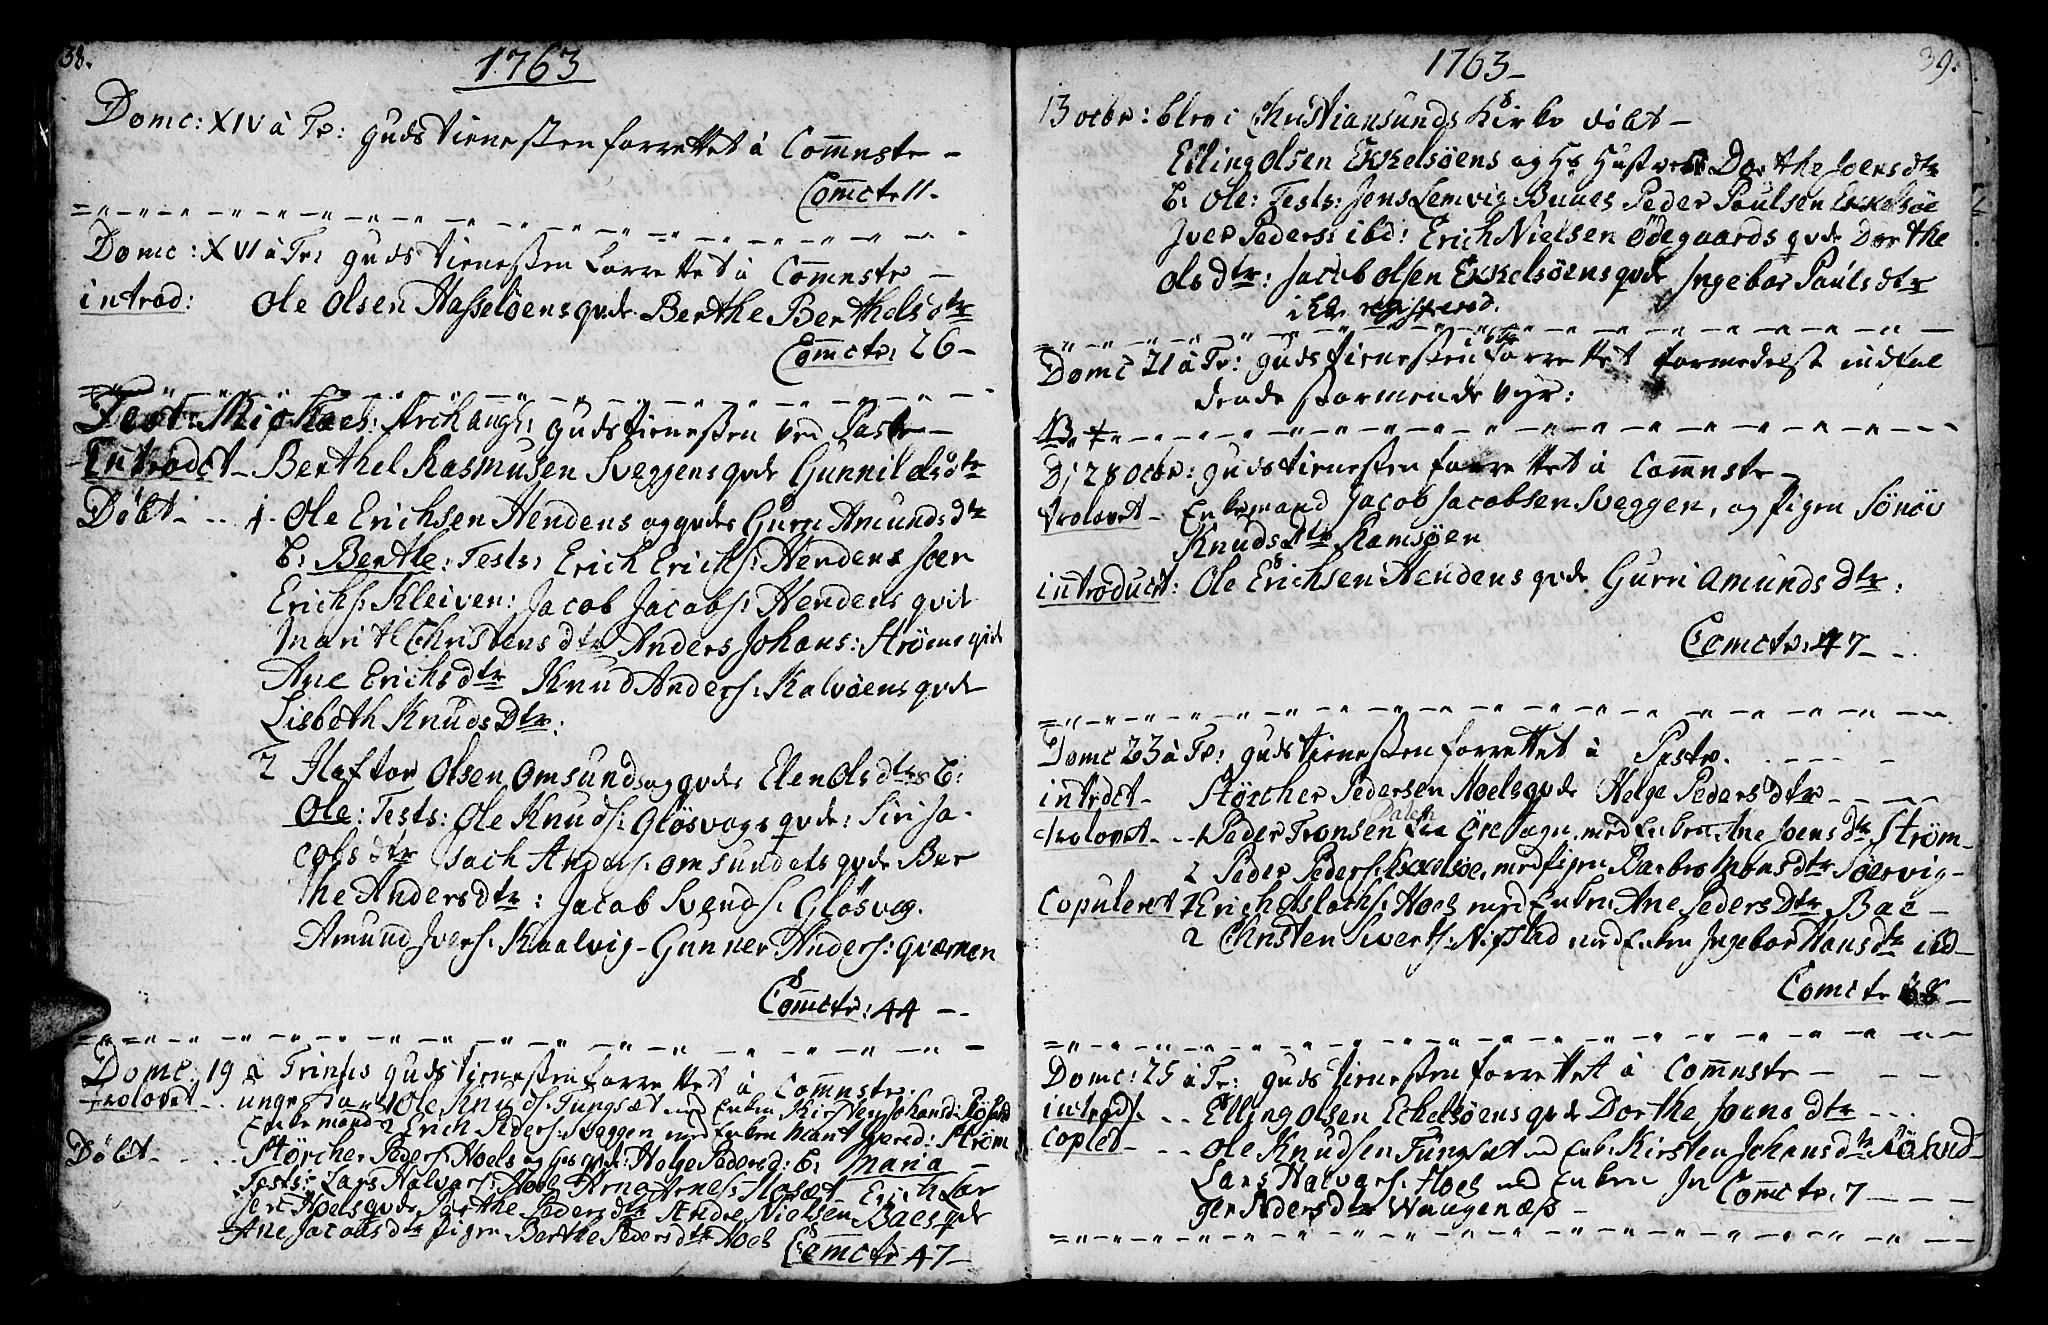 38.
1763
Domc: XIV à Tr: gudstienesten forrettet à Comnste -
Comcte 11.
Domc: XVI à Tr: gudstienesten forrettet à Comnste -
introd: Ole Olsen Hasseløens qvde Berthe Berthelsdtr
Comcte: 26 -
Fest: Michaels: Archangl: gudstienesten ved Pastr -
Introdct - Berthel Rasmusen Sveggens qvde Gunnil olsdtr
Døbt - . . 1. Ole Erichsen Hendens og qvdes Gurri Amundsdtr
b: Berthe: Tests: Erich Erichs: Hendens Joen
Erichs: Kleiven: Jacob Jacobs: Hendens qvde
Marit Christensdtr Anders Johans: Strømsqvde
Ane Erichsdtr Knud Anders: Kalvøens qvde
Lisbeth Knudsdtr.
2 Haftor Olsen Omsunds og qvdes Elen Olsdtrs b:
Ole: Tests: Ole Knuds: Gløsvogs qvde: Siri Ja-
cobsdtr Zach Anders: omsundets qvde Ber
the Andersdtr: Jacob Svends: Gløsvog.
Amund Ivers: Kaalvig - Gunner Anders: qværnen
Comcte: 44 - -
Domc: 19 à Trinits gudstienesten forrettet à Comnste.
Trolovet . . unge Karl Ole Knuds: Fungsæt med Enken Kirsten Johansd:
Enkemand 2 Erich Peders: Sveggen med Enken Marit Iversd: Strøm
Døbt - . . Størcher Peders: Hoels og hs qvde: Helge Pedersd: b: Maria -
Tests: Lars Halvors: Hoel Arne Arnes: Hosæt Erich Lar
sen Hoels qvde Berthe Pedersdtr Andre Nielsen Baes qvde
Ane Jacobsdtr pigen Berthe Pedersdtr Hoel Comcte 47 -
1763 -
39.
13 octbr: blev i Christiansunds Kirke døbt -
Elling Olsen Ekkelsøens og Hs Hustrues Dorthe Joensdtr
b: Ole: Tests: Jens Lemvig Buues Peder Paulsen Ekkelsøe
Iver Peders: ibd: Erich Nielsen Ødegaards qvde Dorthe
Olsdtr: Jacob Olsen Ekkelsøens qvde Ingebor Paulsdtr
Domc 21 à Tr: gudstienesten forrettet formedelst indfal
dende stormende vejr:
D: 28 octbr: gudstienesten forrettet à Comnste -
trolovet - Enkemand Jacob Jacobsen Sveggen, og pigen Sönöv
Knudsdtr Ramsøen
introduct: Ole Erichsen Hendens qvde Gurri Amundsdtr:
Comcte: 47 - .
Domc 23 à Tr: gudstienesten forrettet à Pastr.
introdct - Størcher Pedersen Hoels qvde Helge Pedersdtr
trolovet - . 1 Peder Tronsen Dalen med Enken Ane Joensdtr Strøm -
2 Peder Peders: Ekkelsøe, med pigen Barbro Monsdtr Søervig -
Copuleret 1 Erich Aslachs: Hoel med Enken Ane Pedersdtr Bae -
2 Christen Siverts: Nifstad med Enken Ingebor Hansdtr ibd -
Comcte 68 -
Domc: 25 à Tr: gudstienesten forrettet à Comnste -
introds. . . Elling Olsen Eckelsøens qvde Dorthe Joensdtr . . .
Copled - . . Ole Knudsen Fungsæt md Enk: Kirsten Johansdtr
Lars Halvors: Hoel med Enken In
ger Pedersdtr Waagenæs -
Comcte: 7 -